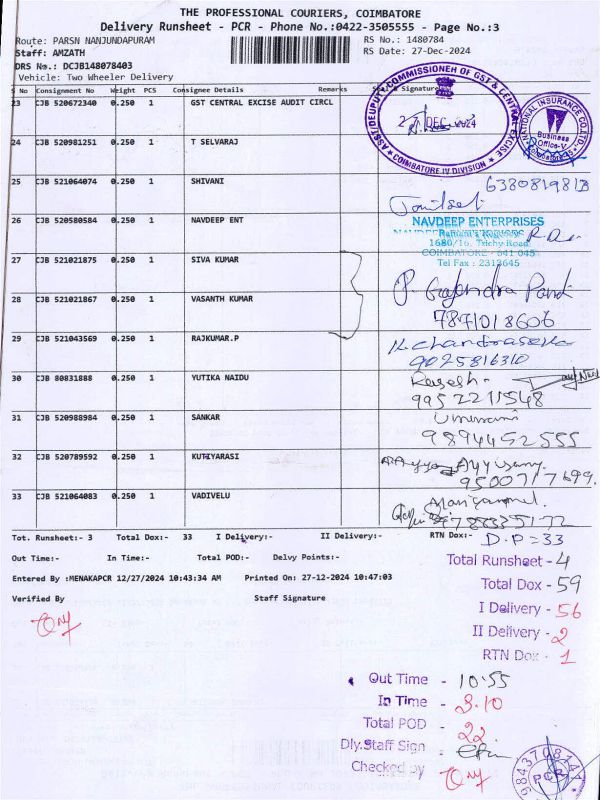 THE PROFESSIONAL COURIERS, COIMBATORE
Delivery Runsheet - PCR - Phone No.:0422-3505555 - Page No.:3
Route: PARSN NANJUNDAPURAM
RS No.: 1480784
Staff: AMZATH
RS Date: 27-Dec-2024
DRS No.: DCJB148078403
Vehicle: Two Wheeler Delivery
S No Consignment No Weight PCS Consignee Details Remarks Signature
23 CJB 520672340 0.250 1 GST CENTRAL EXCISE AUDIT CIRCL
COMMISSIONER OF GST & CENTRAL EXCISE
27 DEC 2024
COIMBATORE IV DIVISION
NATIONAL INSURANCE CO.LTD.
Business
Office-V
24 CJB 520981251 0.250 1 T SELVARAJ
25 CJB 521064074 0.250 1 SHIVANI
26 CJB 520580584 0.250 1 NAVDEEP ENT
NAVDEEP ENTERPRISES
1680/16, Trichy Road,
COIMBATORE - 641 045
Tel Fax : 2312645
27 CJB 521021875 0.250 1 SIVA KUMAR
28 CJB 521021867 0.250 1 VASANTH KUMAR
7871018606
29 CJB 521043569 0.250 1 RAJKUMAR.P
9025816310
30 CJB 80831888 0.250 1 YUTIKA NAIDU
9952211548
31 CJB 520988984 0.250 1 SANKAR
9894492555
32 CJB 520789592 0.250 1 KUTIYARASI
33 CJB 521064083 0.250 1 VADIVELU
Tot. Runsheet:- 3 Total Dox:- 33 I Delivery:- II Delivery:- RTN Dox:-
D.P=33
Out Time:- In Time:- Total POD:- Delvy Points:-
Total Runsheet - 4
Entered By :MENAKAPCR 12/27/2024 10:43:34 AM Printed On: 27-12-2024 10:47:03
Total Dox - 59
Verified By Staff Signature
I Delivery - 56
II Delivery - 2
RTN Dox - 1
Out Time - 10.55
In Time - 3.10
Total POD - 22
Dly.Staff Sign -
Checked by
PCR